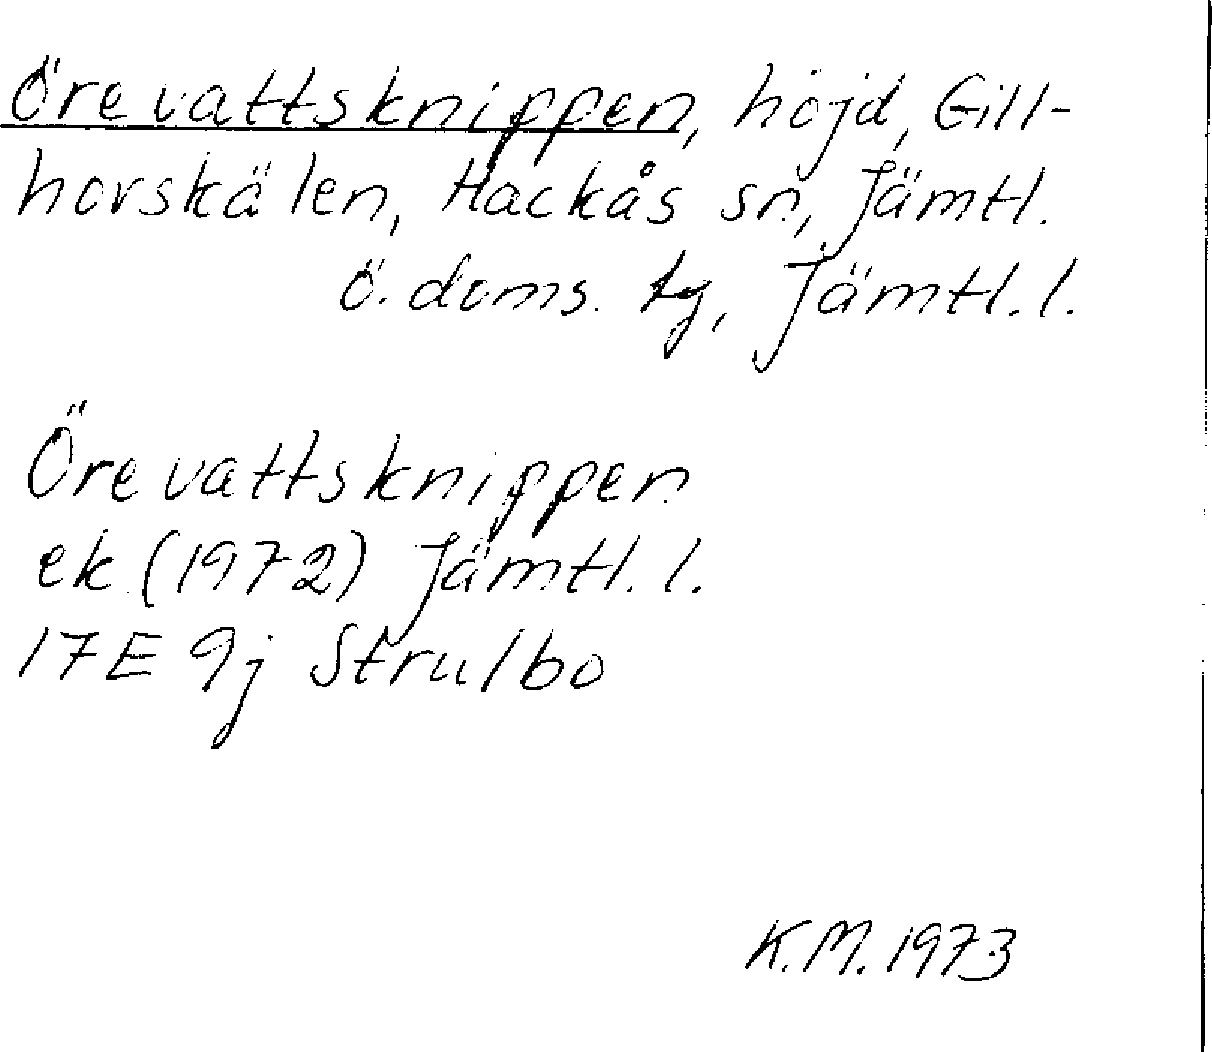 Örevattsknippen, höjd, Gill-
hovskälen, Hackås sn, Jämtl.
ö. doms. tg, Jämtl. l.
Örevattsknippen
ek (1972) Jämtl. l.
17E 9j Strulbo
K.M. 1973